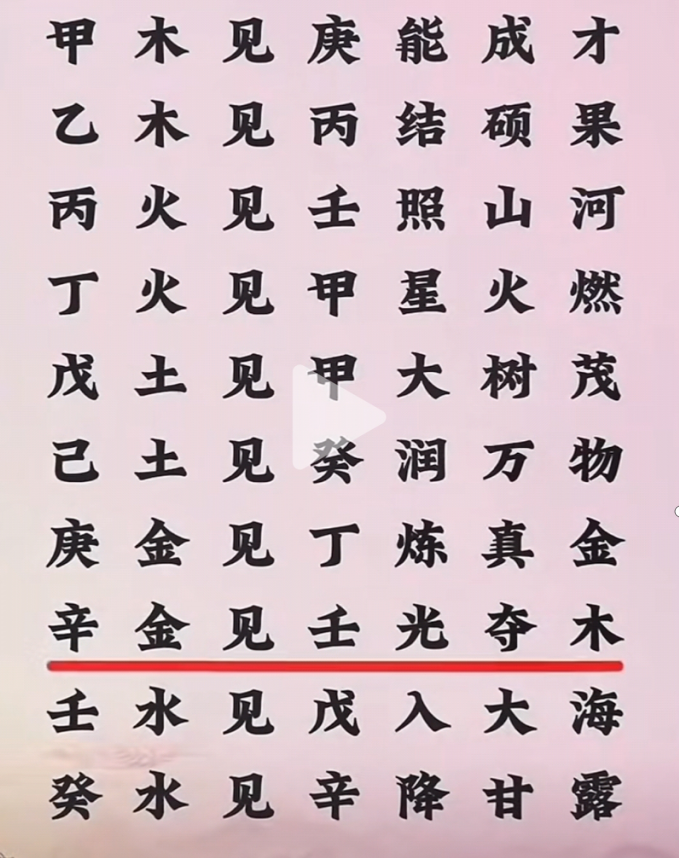 甲木见庚能成才
乙木见丙结硕果
丙火见壬照山河
丁火见甲星火燃
戊土见甲大树茂
己土见癸润万物
庚金见丁炼真金
辛金见壬光夺木
壬水见戊入大海
癸水见辛降甘露